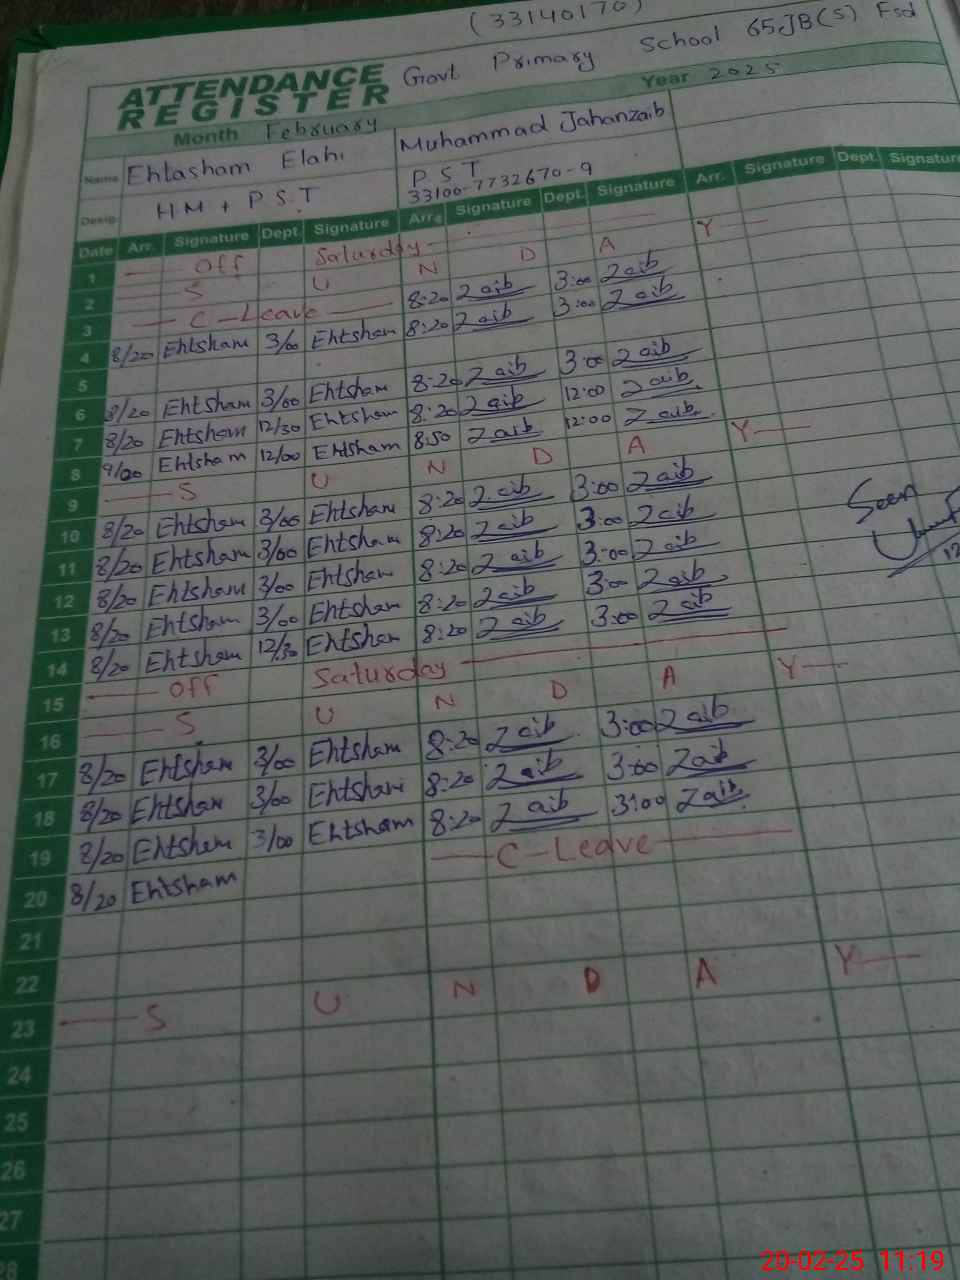 (33140170)
ATTENDANCE REGISTER Govt Primary School 65JB(S) Fsd
Month February Year 2025
Name Ehtasham Elahi Muhammad Jahanzaib
Desig. HM + P.S.T P S T 33100-7732670-9
Date Arr. Signature Dept. Signature Arr. Signature Dept. Signature Arr. Signature Dept. Signature
1 Off Saturday
2 S U N D A Y
3 C-Leave 8:20 Zaib 3:00 Zaib
4 8/20 Ehtsham 3/00 Ehtsham 8:20 Zaib 3:00 Zaib
5
6 8/20 Ehtsham 3/00 Ehtsham 8:20 Zaib 3:00 Zaib
7 8/20 Ehtsham 12/30 Ehtsham 8:20 Zaib 12:00 Zaib
8 9/00 Ehtsham 12/00 Ehtsham 8:50 Zaib 12:00 Zaib
9 S U N D A Y
10 8/20 Ehtsham 3/00 Ehtsham 8:20 Zaib 3:00 Zaib
11 8/20 Ehtsham 3/00 Ehtsham 8:20 Zaib 3:00 Zaib
12 8/20 Ehtsham 3/00 Ehtsham 8:20 Zaib 3:00 Zaib
13 8/20 Ehtsham 3/00 Ehtsham 8:20 Zaib 3:00 Zaib
14 8/20 Ehtsham 12/30 Ehtsham 8:20 Zaib 3:00 Zaib
15 Off Saturday
16 S U N D A Y
17 8/20 Ehtsham 3/00 Ehtsham 8:20 Zaib 3:00 Zaib
18 8/20 Ehtsham 3/00 Ehtsham 8:20 Zaib 3:00 Zaib
19 8/20 Ehtsham 3/00 Ehtsham 8:20 Zaib 3:00 Zaib
20 8/20 Ehtsham C-Leave
21
22
23 S U N D A Y
24
25
26
27
28
Seen
12
20-02-25 11:19